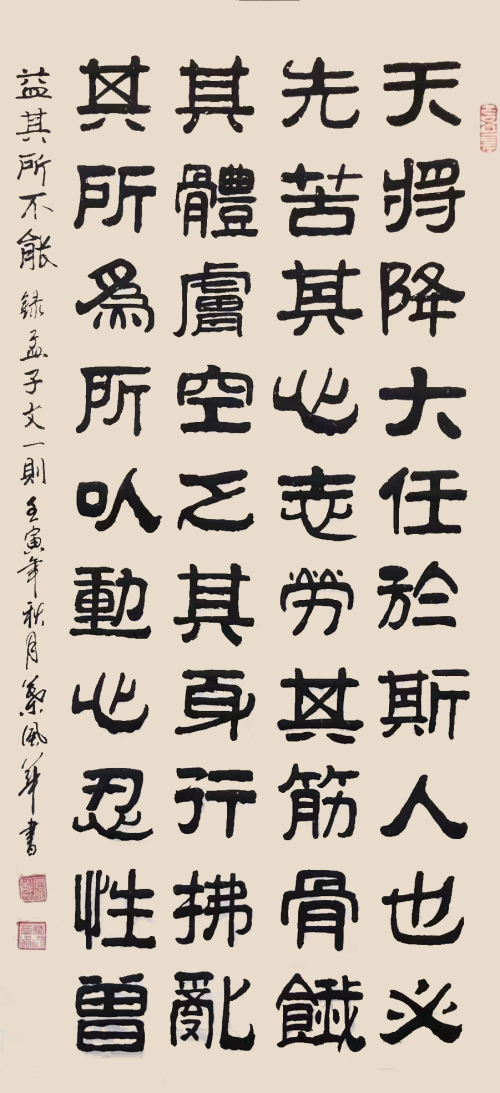 天將降大任於斯人也必
先苦其心志勞其筋骨餓
其體膚空乏其身行拂亂
其所為所以動心忍性曾
益其所不能 録孟子文一則 壬寅年秋月 風華書